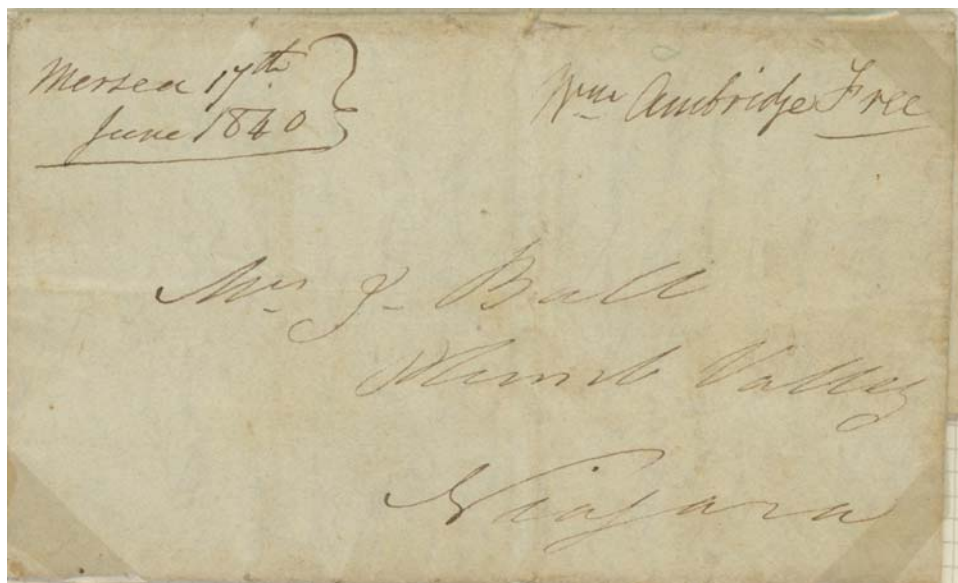 Mersea 17th
June 1840
Wm Ambridge Free
Mrs J. Ball
Valley
Niagara